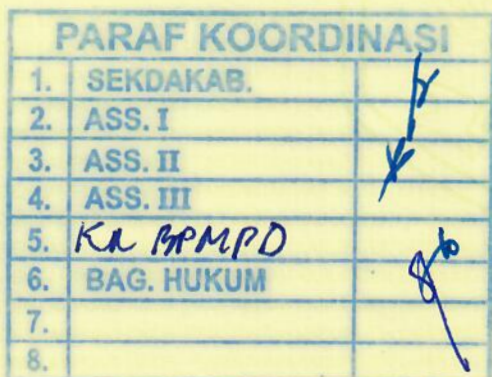 PARAF KOORDINASI
1. SEKDAKAB.
2. ASS. I
3. ASS. II
4. ASS. III
5. Ka BPMPD
6. BAG. HUKUM
7.
8.